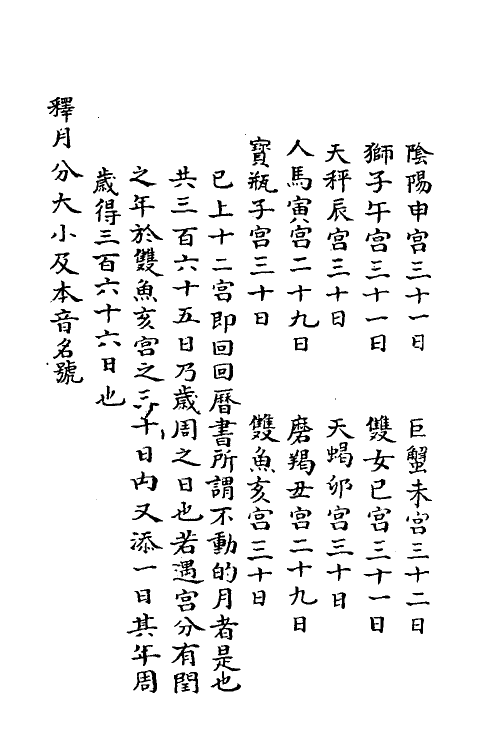 陰陽申宮三十一日　巨蟹未宮三十二日
獅子午宮三十一日　雙女巳宮三十一日
天秤辰宮三十日　天蝎卯宮三十日
人馬寅宮二十九日　磨羯丑宮二十九日
寳瓶子宮三十日　雙魚亥宮三十日
已上十二宮即回回曆書所謂不動的月者是也
共三百六十五日乃歲周之日也若遇宮分有閏
之年於雙魚亥宮之三十日内又添一日其年周
歲得三百六十六日也
釋月分大小及本音名號